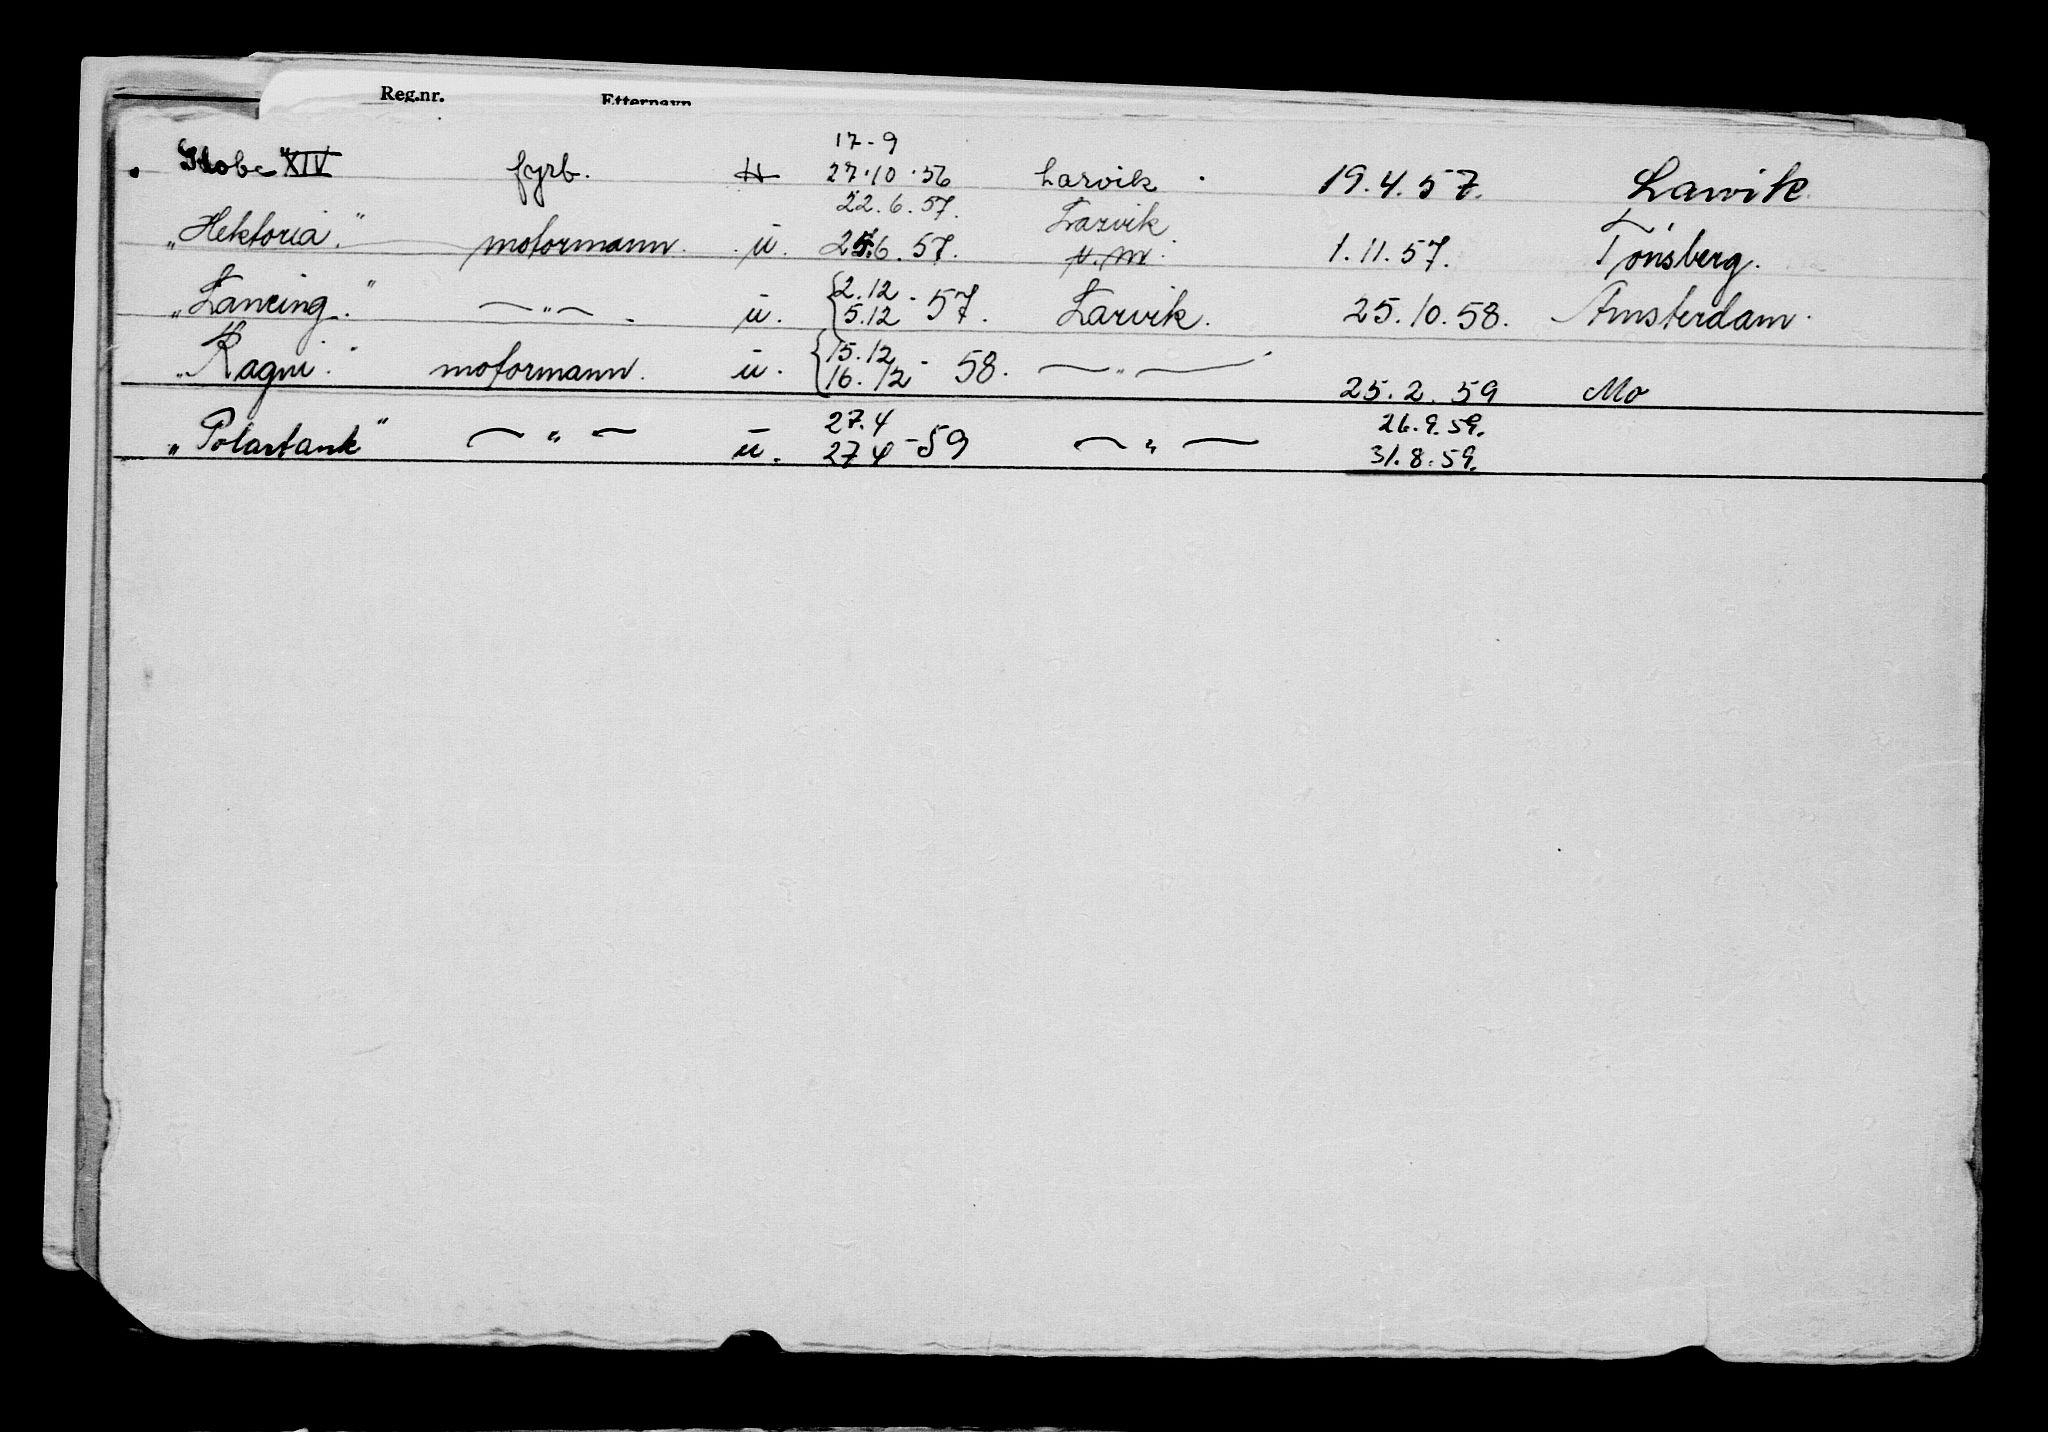 Reg.nr. Etternavn
17-9
Globe XIV fyrb. H 27.10.56 Larvik. 19.4.57. Larvik.
22.6.57. Larvik
„Hektoria." motormann. u. 25.6.57. u.m. 1.11.57. Tønsberg.
„Lancing." — " — . u. {2.12 5.12 - 57. Larvik. 25.10.58. Amsterdam.
„Ragni." motormann. u. {15.12 16.12 - 58. — " — 25.2.59 Mo
27.4 26.9.59.
„Polartank" — " — u. 27 4 -59 — " — 31.8.59.